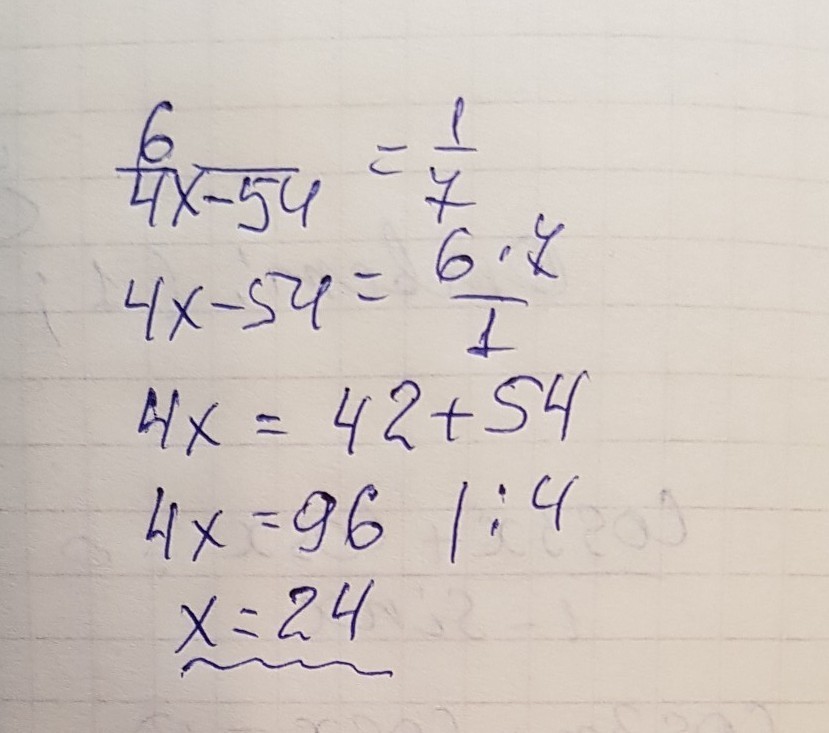 6/(4x-54) = 1/7
4x-54 = (6·7)/1
4x = 42+54
4x = 96 |:4
x = 24